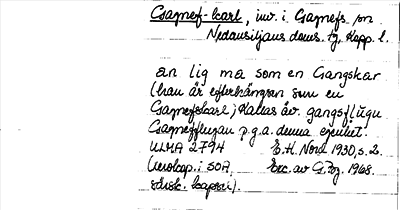 Gapnef-karl, inv. i. Gapnefs sn
Nedansiljans doms. fg, Kopp. l.
an lig ma som en Gangskar
(han är efterhängsen som en
Gapnefskarl) Kallas äv. gangsflugu
Gapnefflugan p.g.a. denna egenhet.
ULMA 2794 E.H. Nord 1930, s. 2.
(verslap. i SOA, Exc. av G. Zbg. 1968.
kapsel).